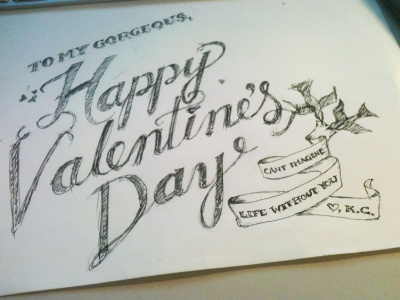 TO MY GORGEOUS,
Happy
Valentine's
Day
CANT IMAGINE
LIFE WITHOUT YOU
♡, K.C.